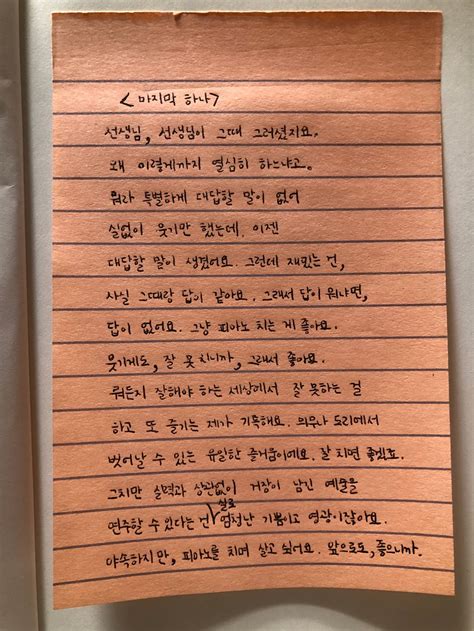 <마지막 하나>
선생님, 선생님이 그때 그러셨지요.
왜 이렇게까지 열심히 하느냐고.
뭐라 특별하게 대답할 말이 없어
실없이 웃기만 했는데, 이젠
대답할 말이 생겼어요. 그런데 재밌는 건,
사실 그때랑 답이 같아요. 그래서 답이 뭐냐면,
답이 없어요. 그냥 피아노 치는 게 좋아요.
웃기게도, 잘 못 치니까, 그래서 좋아요.
뭐든지 잘해야 하는 세상에서 잘 못하는 걸
하고 또 즐기는 제가 기특해요. 의무나 도리에서
벗어날 수 있는 유일한 즐거움이에요. 잘 치면 좋겠죠.
그치만 실력과 상관없이 거장이 남긴 예술을
연주할 수 있다는 건 실로 엄청난 기쁨이고 영광이잖아요.
야속하지만, 피아노를 치며 살고 싶어요. 앞으로도, 좋으니까.